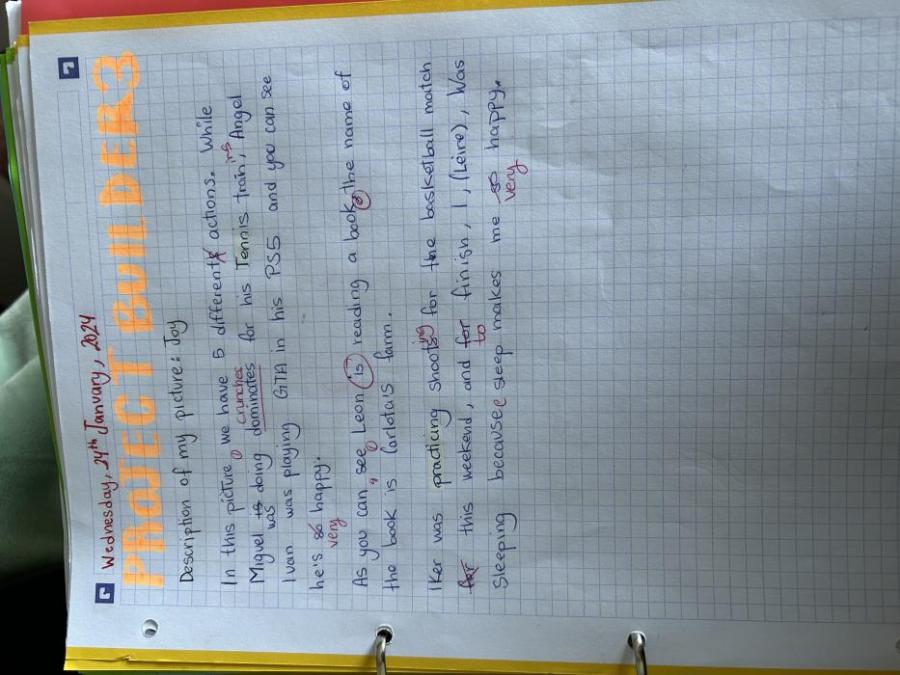 Wednesday, 24th January, 2024
PROJECT BUILDER 3
Description of my picture: Joy
In this picture we have 5 different actions. While
crunches
Miguel is doing dominates for his Tennis train, Angel
ing
was
Ivan was playing GTA in his PS5 and you can see
he's so happy.
very
As you can, see Leon is reading a book, the name of
the book is Carlota's farm.
Iker was practicing shoots for the basketball match
ing
for this weekend, and for finish, I, (Leire), Was
to
Sleeping because sleep makes me so happy.
very